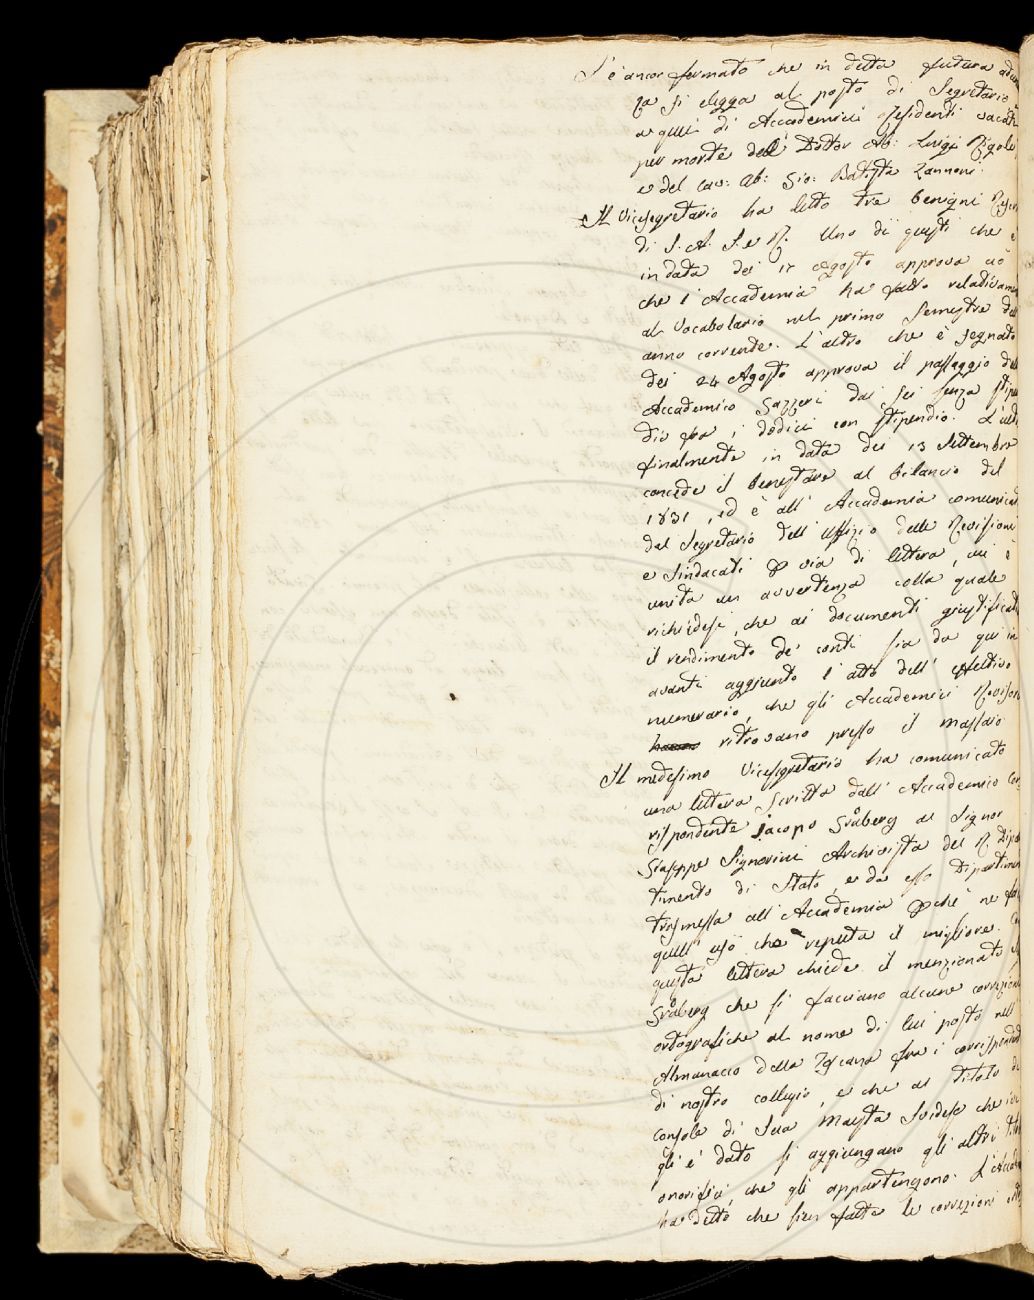 S'è ancor fermato che in detta futura adun
za si elegga al posto di Segretario
a quelli di Accademici residenti vacati
per morte dell Dottor Ab: Luigi Rigoli
e del Cav: Ab: Gio: Batista Zannoni.
Il Vicesegretario ha letto tre benigni Rescri
di S. A. I. e R. Uno di questi che è
in data dei 17 Agosto approva ciò
che l'Accademia ha fatto relativamen
al Vocabolario nel primo Semestre dell
anno corrente. L'altro che è segnato
dei 24 Agosto approva il passaggio dell
Accademico Gazzeri dai sei senza stipen
dio fra i dodici con stipendio. L'ult
finalmente in data dei 13 Settembre
concede il benestare al bilancio del
1831, ed è all'Accademia comunicat
dal Segretario dell'Uffizio delle Revisioni
e Sindacati p via di lettera, cui è
unita un avvertenza colla quale
richiedesi, che ai documenti giustificati
il rendimento de' conti sia da qui in
avanti aggiunto l'atto dell'effettivo
numerario, che gli Accademici Revisori
ritrovano presso il Massaio
Il medesimo Vicesegretario ha comunicato
una lettera scritta dall'Accademico Cor
rispondente Jacopo Gråberg al Signor
Giuseppe Signorini Archivista del R. Dipar
timento di Stato, e da esso Dipartimen
trasmessa all'Accademia pchè ne fac
quell'uso che reputa il migliore.
questa lettera chiede il menzionato
Gråberg che si facciano alcune correzioni
ortografiche al nome di lui posto nell
Almanacco della Toscana fra i corrispondent
di nostro collegio, e che al titolo di
console di Sua Maestà Svedese che ivi
gli è dato si aggiungano gli altri tit
onorifici, che gli appartengono. L'Accad
ha detto che sien fatte le correzioni